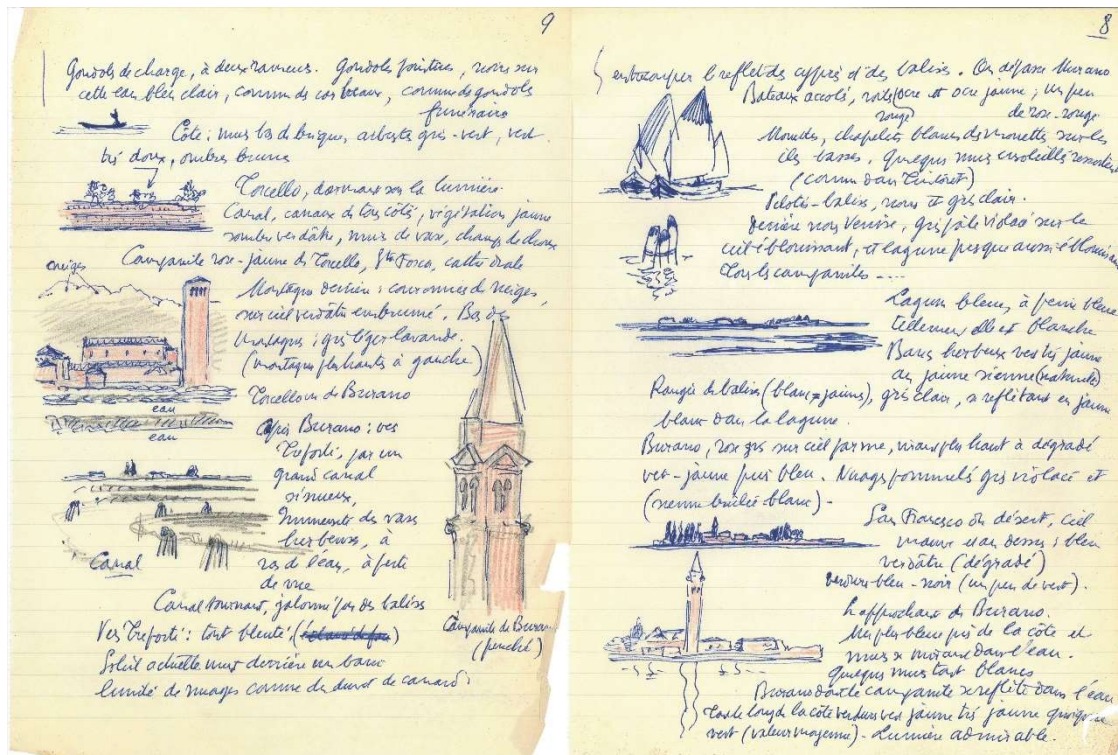 9
Gondoles de charge, à deux rameurs. Gondoles pointues, noires sur
cette eau bleu clair, comme des corbeaux, comme des gondoles
funéraires
Côte : murs bas de brique, arbustes gris-vert, vert
très doux, ombres brunes
Torcello, dormant sous la lumière
Canal, canaux de tous côtés, végétation jaune
sombre verdâtre, murs de vase, champs de choux
Campanile rose-jaune de Torcello, Sta Fosca, cathédrale
neiges
Montagnes derrière : couronnes de neiges,
sur ciel verdâtre embrumé. Bas des
montagnes : gris léger lavande.
(montagnes plus hautes à gauche)
Torcello vu de Burano
eau
eau
Après Burano : vers
Treporti, par un
grand canal
sinueux,
Immensité des vases
herbeuses, à
ras de l'eau, à perte
de vue
Canal
Canal tournant, jalonné par des balises
Vers Treporti : tout bleuté,
Campanile de Burano
(penché)
Soleil actuellement derrière un banc
limité de nuages comme du duvet de canard.
8
entrecouper le reflet des cyprès et des balises. On dépasse Murano
Bateaux accolés, voiles ocre rouge et ocre jaune ; un peu
de rose-rouge
Mouettes, chapelets blancs de mouettes sur les
îles basses. Quelques murs ensoleillés ressortent
(comme dans Tintoret)
Pilotis-balises, noirs et gris clair.
Derrière nous Venise, gris pâle violacé sur le
ciel éblouissant, et lagune presque aussi éblouissante
Tous les campaniles ....
Lagune bleue, à peine bleue
tellement elle est blanche
Bancs herbeux verts très jaune
ou jaune sienne (naturelle)
Rangée de balises (blanc + jaunes), gris clair, se reflétant en jaune
blanc dans la lagune.
Burano, rose gris sur ciel parme, mais plus haut à dégradé
vert-jaune puis bleu. Nuages pommelés gris violacé et
(sienne brûlée-blanc) -
San Francesco du désert, ciel
mauve et au dessus : bleu
verdâtre (dégradé)
verdure bleu-noir (un peu de vert).
L'approchant de Burano.
plus bleue près de la côte et
murs se mirant dans l'eau.
Quelques murs tout blancs
Burano dont le campanile se reflète dans l'eau
Tout le long de la côte verdures vert jaune très jaune quoique
vert (valeur moyenne) - Lumière admirable.